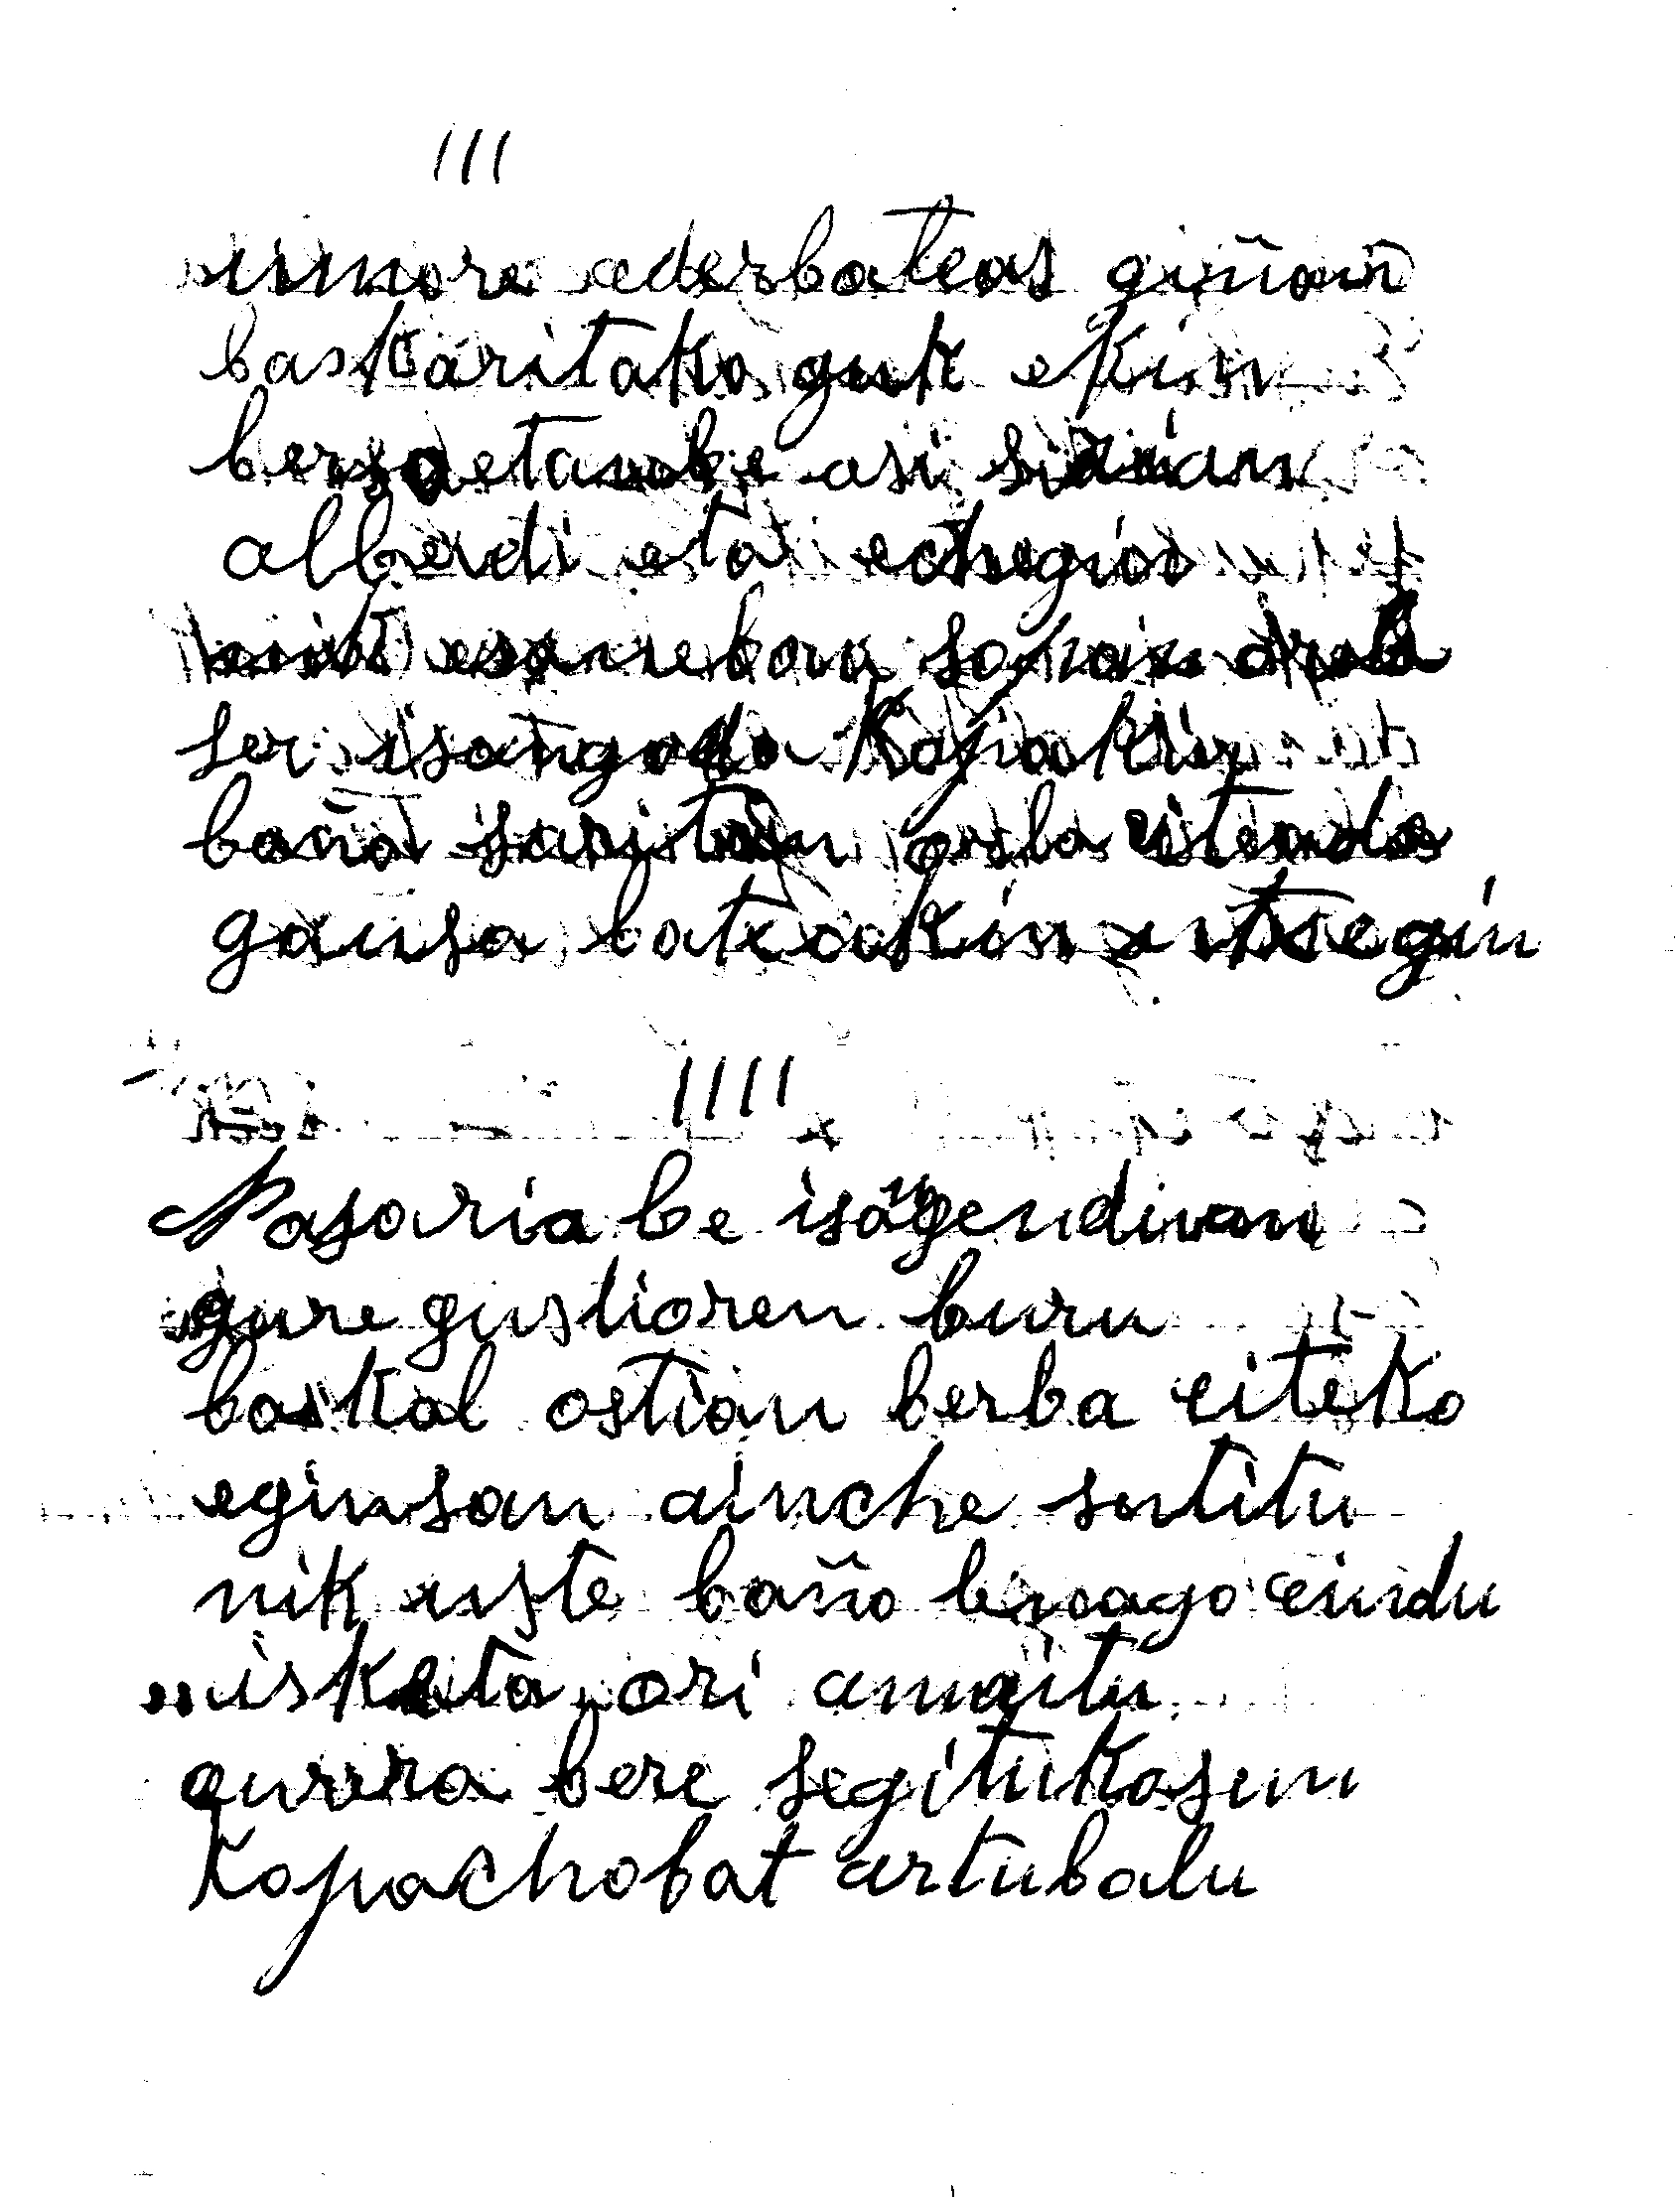 III
umore ederbateas giñan
baskaritako guk ekin
bersoetanbe asi siñian
alberdi eta echegin
esaneban
ser isangoda Kopiakin
baña saritan ola istenda
gausa bateakin utsegin
IIII
Nasaria be isangendivan
gure gustioren buru
baskal ostian berba eiteko
eginsan ainche sutitu
nik uste baño beroago eindu
isketa ori amaitu
aurrra bere segitukosun
Kopachobat artubalu